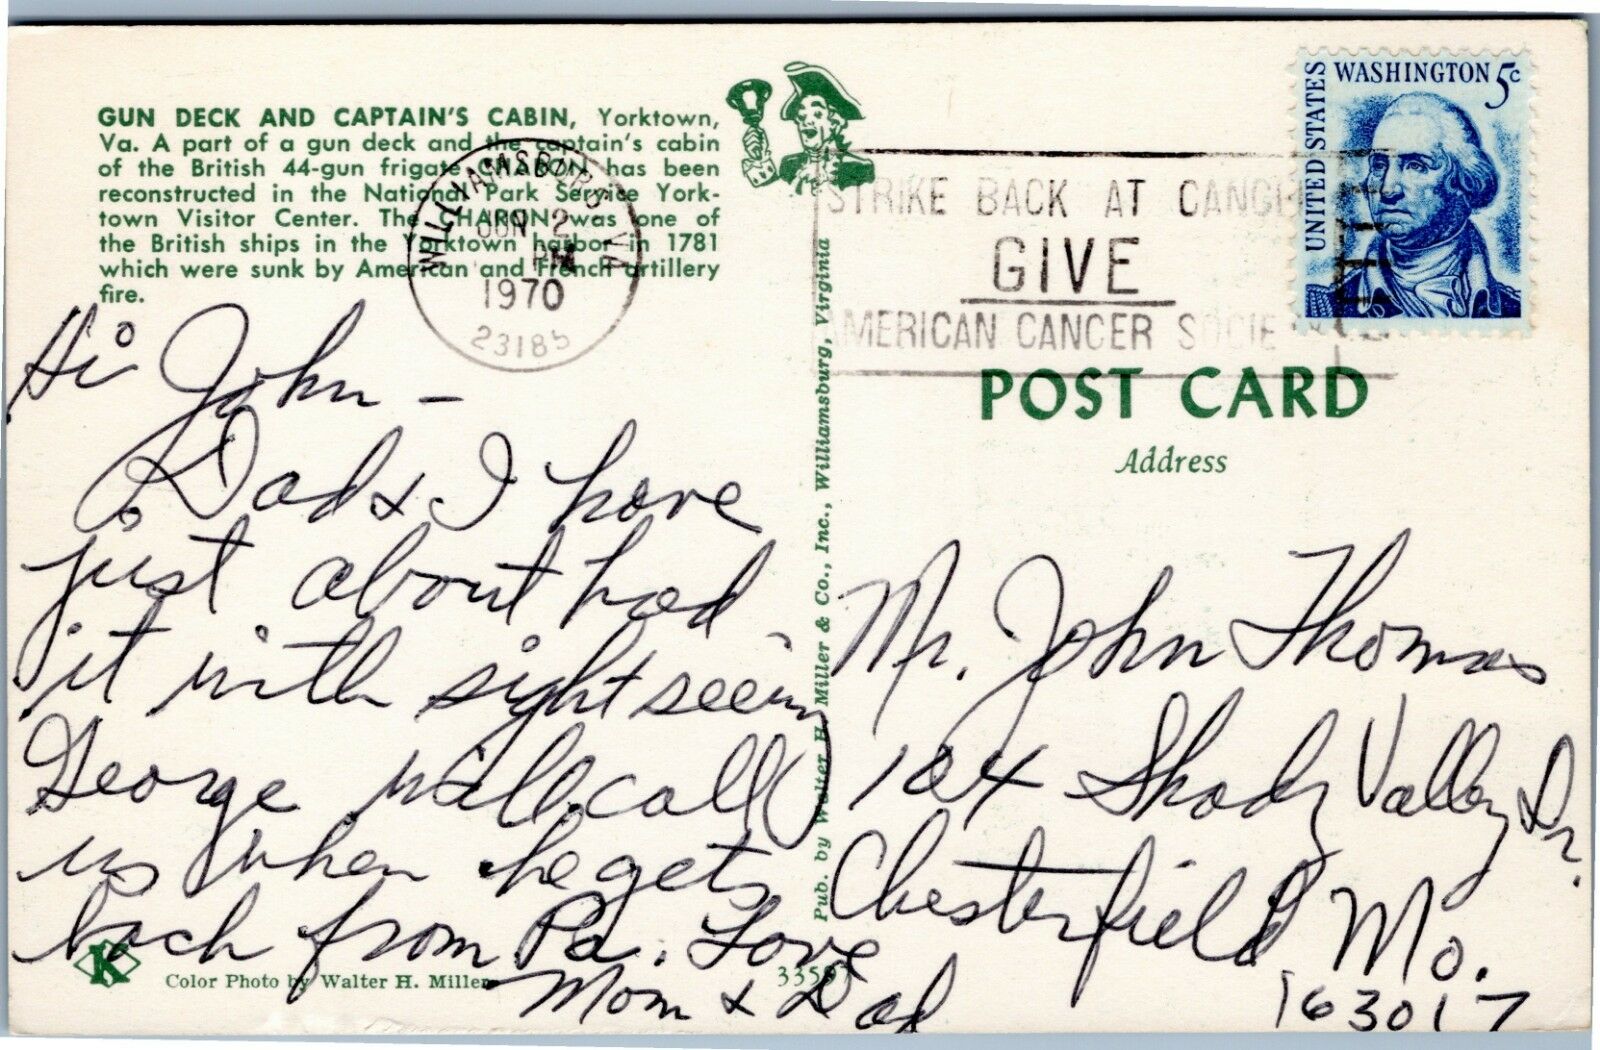 GUN DECK AND CAPTAIN'S CABIN, Yorktown,
Va. A part of a gun deck and the captain's cabin
of the British 44-gun frigate CHARON has been
reconstructed in the National Park Service York-
town Visitor Center. The CHARON was one of
the British ships in the Yorktown harbor in 1781
which were sunk by American and French artillery
fire.
WILLIAMSBURG VA
JUN 2
PM
1970
23185
STRIKE BACK AT CANCE
GIVE
AMERICAN CANCER SOCIE
UNITED STATES
WASHINGTON 5c
POST CARD
Address
Hi John –
Dad & I have
just about had
it with sight seeing
George will call
us when he gets
back from Pa. Love
Mom & Dad
Pub. by Walter H. Miller & Co., Inc., Williamsburg, Virginia
Mr. John Thomas
Shady Valley Dr.
Chesterfield Mo.
163017
K
Color Photo by Walter H. Miller